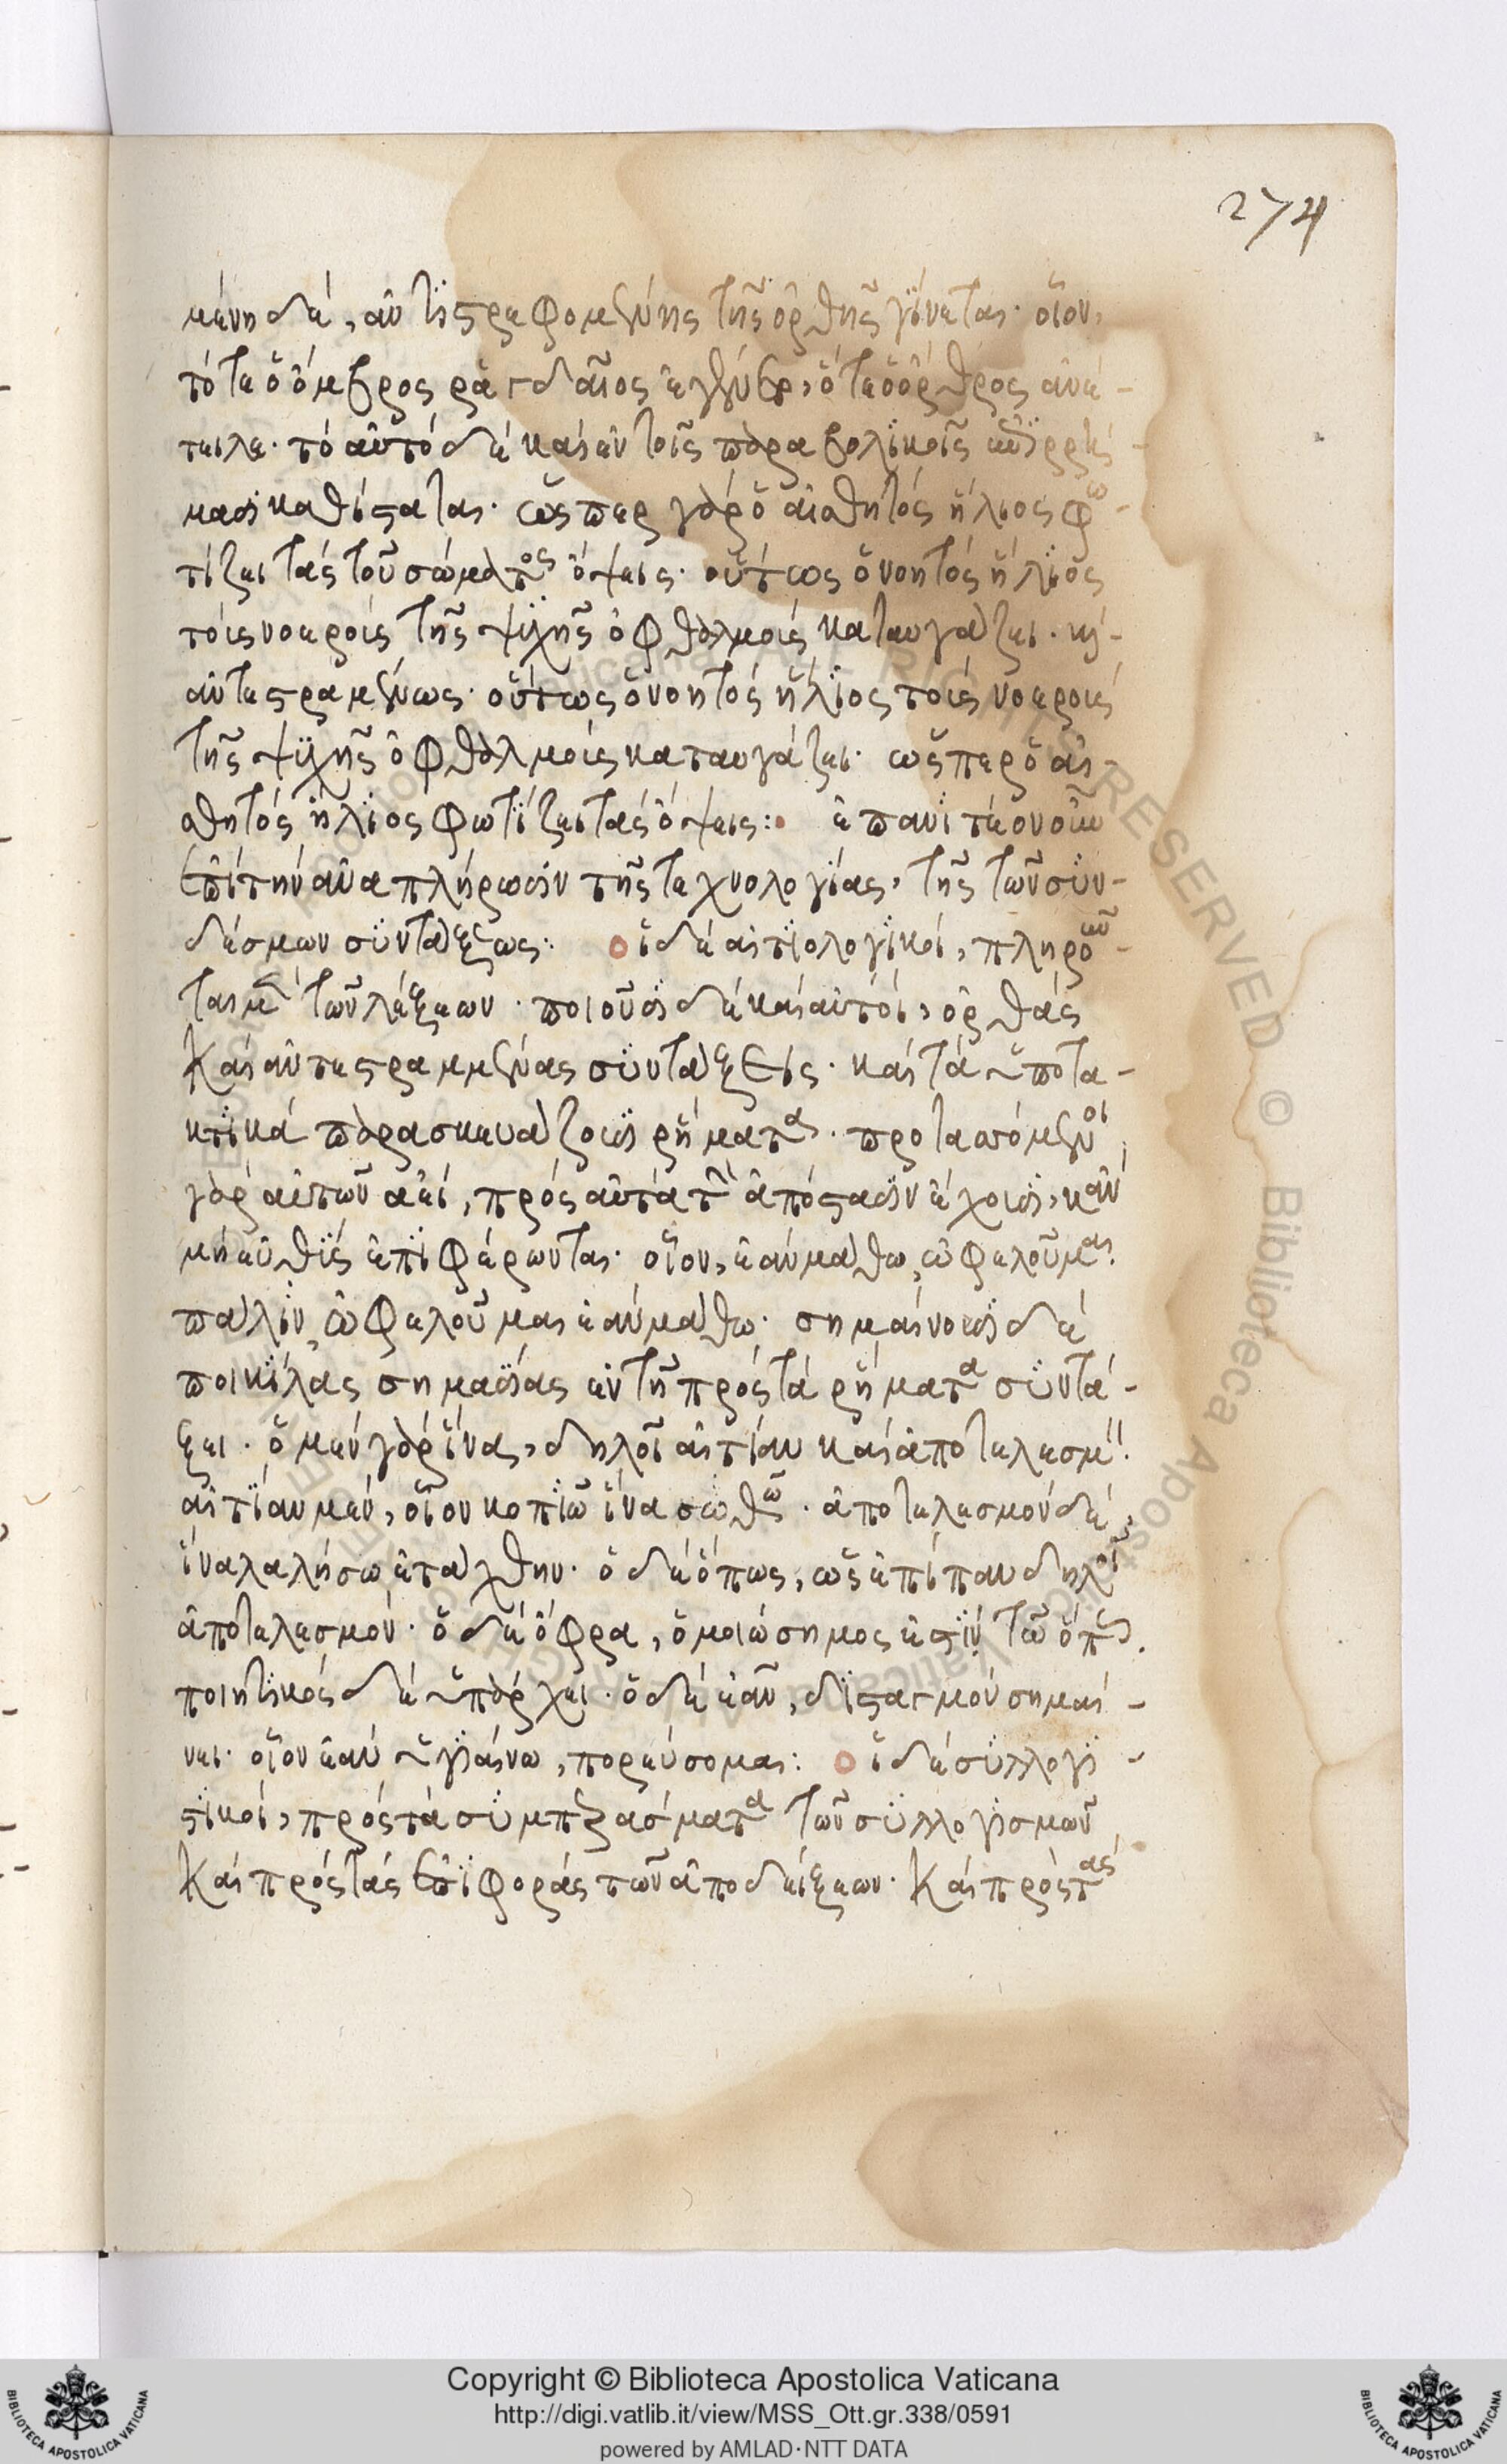 274
μένη δέ, ἀντιστρεφομένης τῆς ὀρθῆς γίνεται· οἷον,
τότε ὁ ὄμβρος ῥαγδαῖος ἐγένετο, ὅτε ὁ ὄρθρος ἀνέ-
τειλε· τὸ αὐτὸ δὲ καὶ ἐν τοῖς παραβολικοῖς
μασι καθίσταται· ὥσπερ γὰρ ὁ αἰσθητὸς ἥλιος φω-
τίζει τὰς τοῦ σώματος ὄψεις· οὕτως ὁ νοητὸς ἥλιος
τοῖς νοεροῖς τῆς ψυχῆς ὀφθαλμοῖς καταυγάζει· κὴ
ἀντεστραμένως· οὕτως ὁ νοητὸς ἥλιος τοῖς νοεροῖς
τῆς ψυχῆς ὀφθαλμοῖς καταυγάζει· ὥσπερ ὁ αἰ-
σθητὸς ἥλιος φωτίζει τὰς ὄψεις: ἐπανιτέον οὖν
ἐπὶ τὴν ἀναπλήρωσιν τῆς τεχνολογίας, τῆς τῶν συν-
δέσμων συντάξεως: οἱ δὲ αἰτιολογικοὶ, πληροῦν-
ται μὲν τῶν λέξεων· ποιοῦσι δὲ καὶ αὐτοὶ, ὀρθάς
καὶ ἀντεστραμμένας συντάξεις· καὶ τὰ ὑποτα-
κτικὰ παρασκευάζουσι ῥήματα· προτασσόμενοι
γὰρ αὐτῶν ἀεὶ, πρὸς αὐτὰ τὴν ἀπόστασιν ἔχουσι, κἂν
μὴ εὐθὺς ἐπιφέρωνται· οἷον, ἐὰν μάθω, ὠφελοῦμαι·
πάλιν, ὠφελοῦμαι ἐὰν μάθω· σημαίνουσι δὲ
ποικίλας σημασίας ἐν τῇ πρὸς τὰ ῥήματα συντά-
ξει· ὁ μὲν γὰρ ἵνα, δηλοῖ αἰτίαν καὶ ἀποτελεσμόν·
αἰτίαν μὲν, οἷον κοπιῶ ἵνα σωθῶ· ἀποτελεσμὸν δὲ,
ἵνα λαλήσω ἐτάχθην· ὁ δὲ ὅπως, ὡς ἐπίπαν δηλοῖ
ἀποτελεσμόν· ὁ δὲ ὄφρα, ὁμοιώσημος ἐστὶν τῷ ὅπως.
ποιητικὸς δὲ ὑπάρχει· ὁ δὲ ἐὰν, δισταγμὸν σημαί-
νει· οἷον ἐὰν ὑγιαίνω, πορεύσομαι: οἱ δὲ συλλογι-
στικοὶ, πρὸς τὰ συμπεράσματα τῶν συλλογισμῶν
καὶ πρὸς τὰς ἐπιφορὰς τῶν ἀποδείξεων· καὶ πρὸς τὰς
Copyright © Biblioteca Apostolica Vaticana
http://digi.vatlib.it/view/MSS_Ott.gr.338/0591
powered by AMLAD·NTT DATA